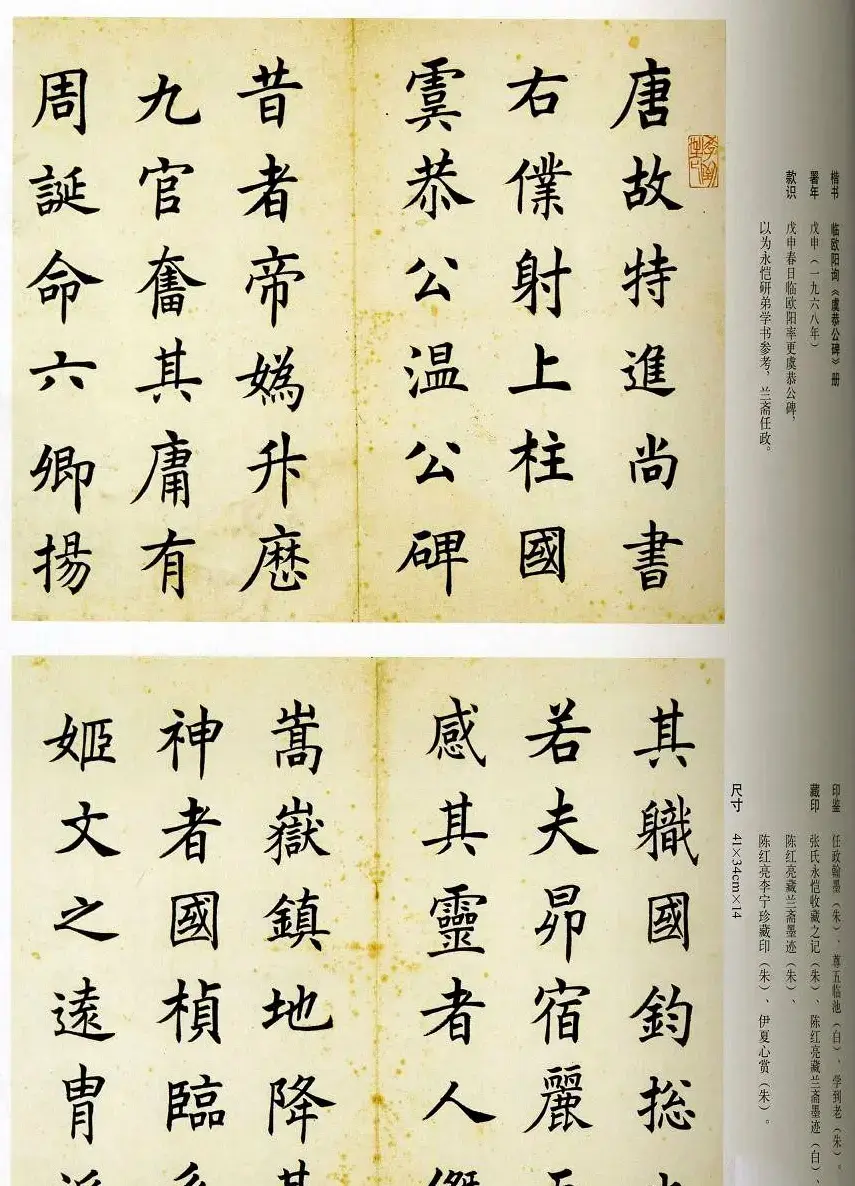 唐故特進尚書
右僕射上柱國
虞恭公温公碑
昔者帝媯升歷
九官奮其庸有
周誕命六卿揚
其職國鈞捴
若夫昴宿麗
感其靈者人傑
嵩嶽鎮地降其
神者國楨臨
姬文之遠胄
楷书 临欧阳询《虞恭公碑》册
署年 戊申（一九六八年）
款识 戊申春日临欧阳率更虞恭公碑，
以为永恺研弟学书参考，兰斋任政。
印鉴 任政翰墨（朱）、尊五临池（白）、学到老（朱）。
藏印 张氏永恺收藏之记（朱）、陈红亮藏兰斋墨迹（白）、
陈红亮藏兰斋墨迹（朱）、
陈红亮李宁珍藏印（朱）、伊夏心赏（朱）。
尺寸 41×34cm×14